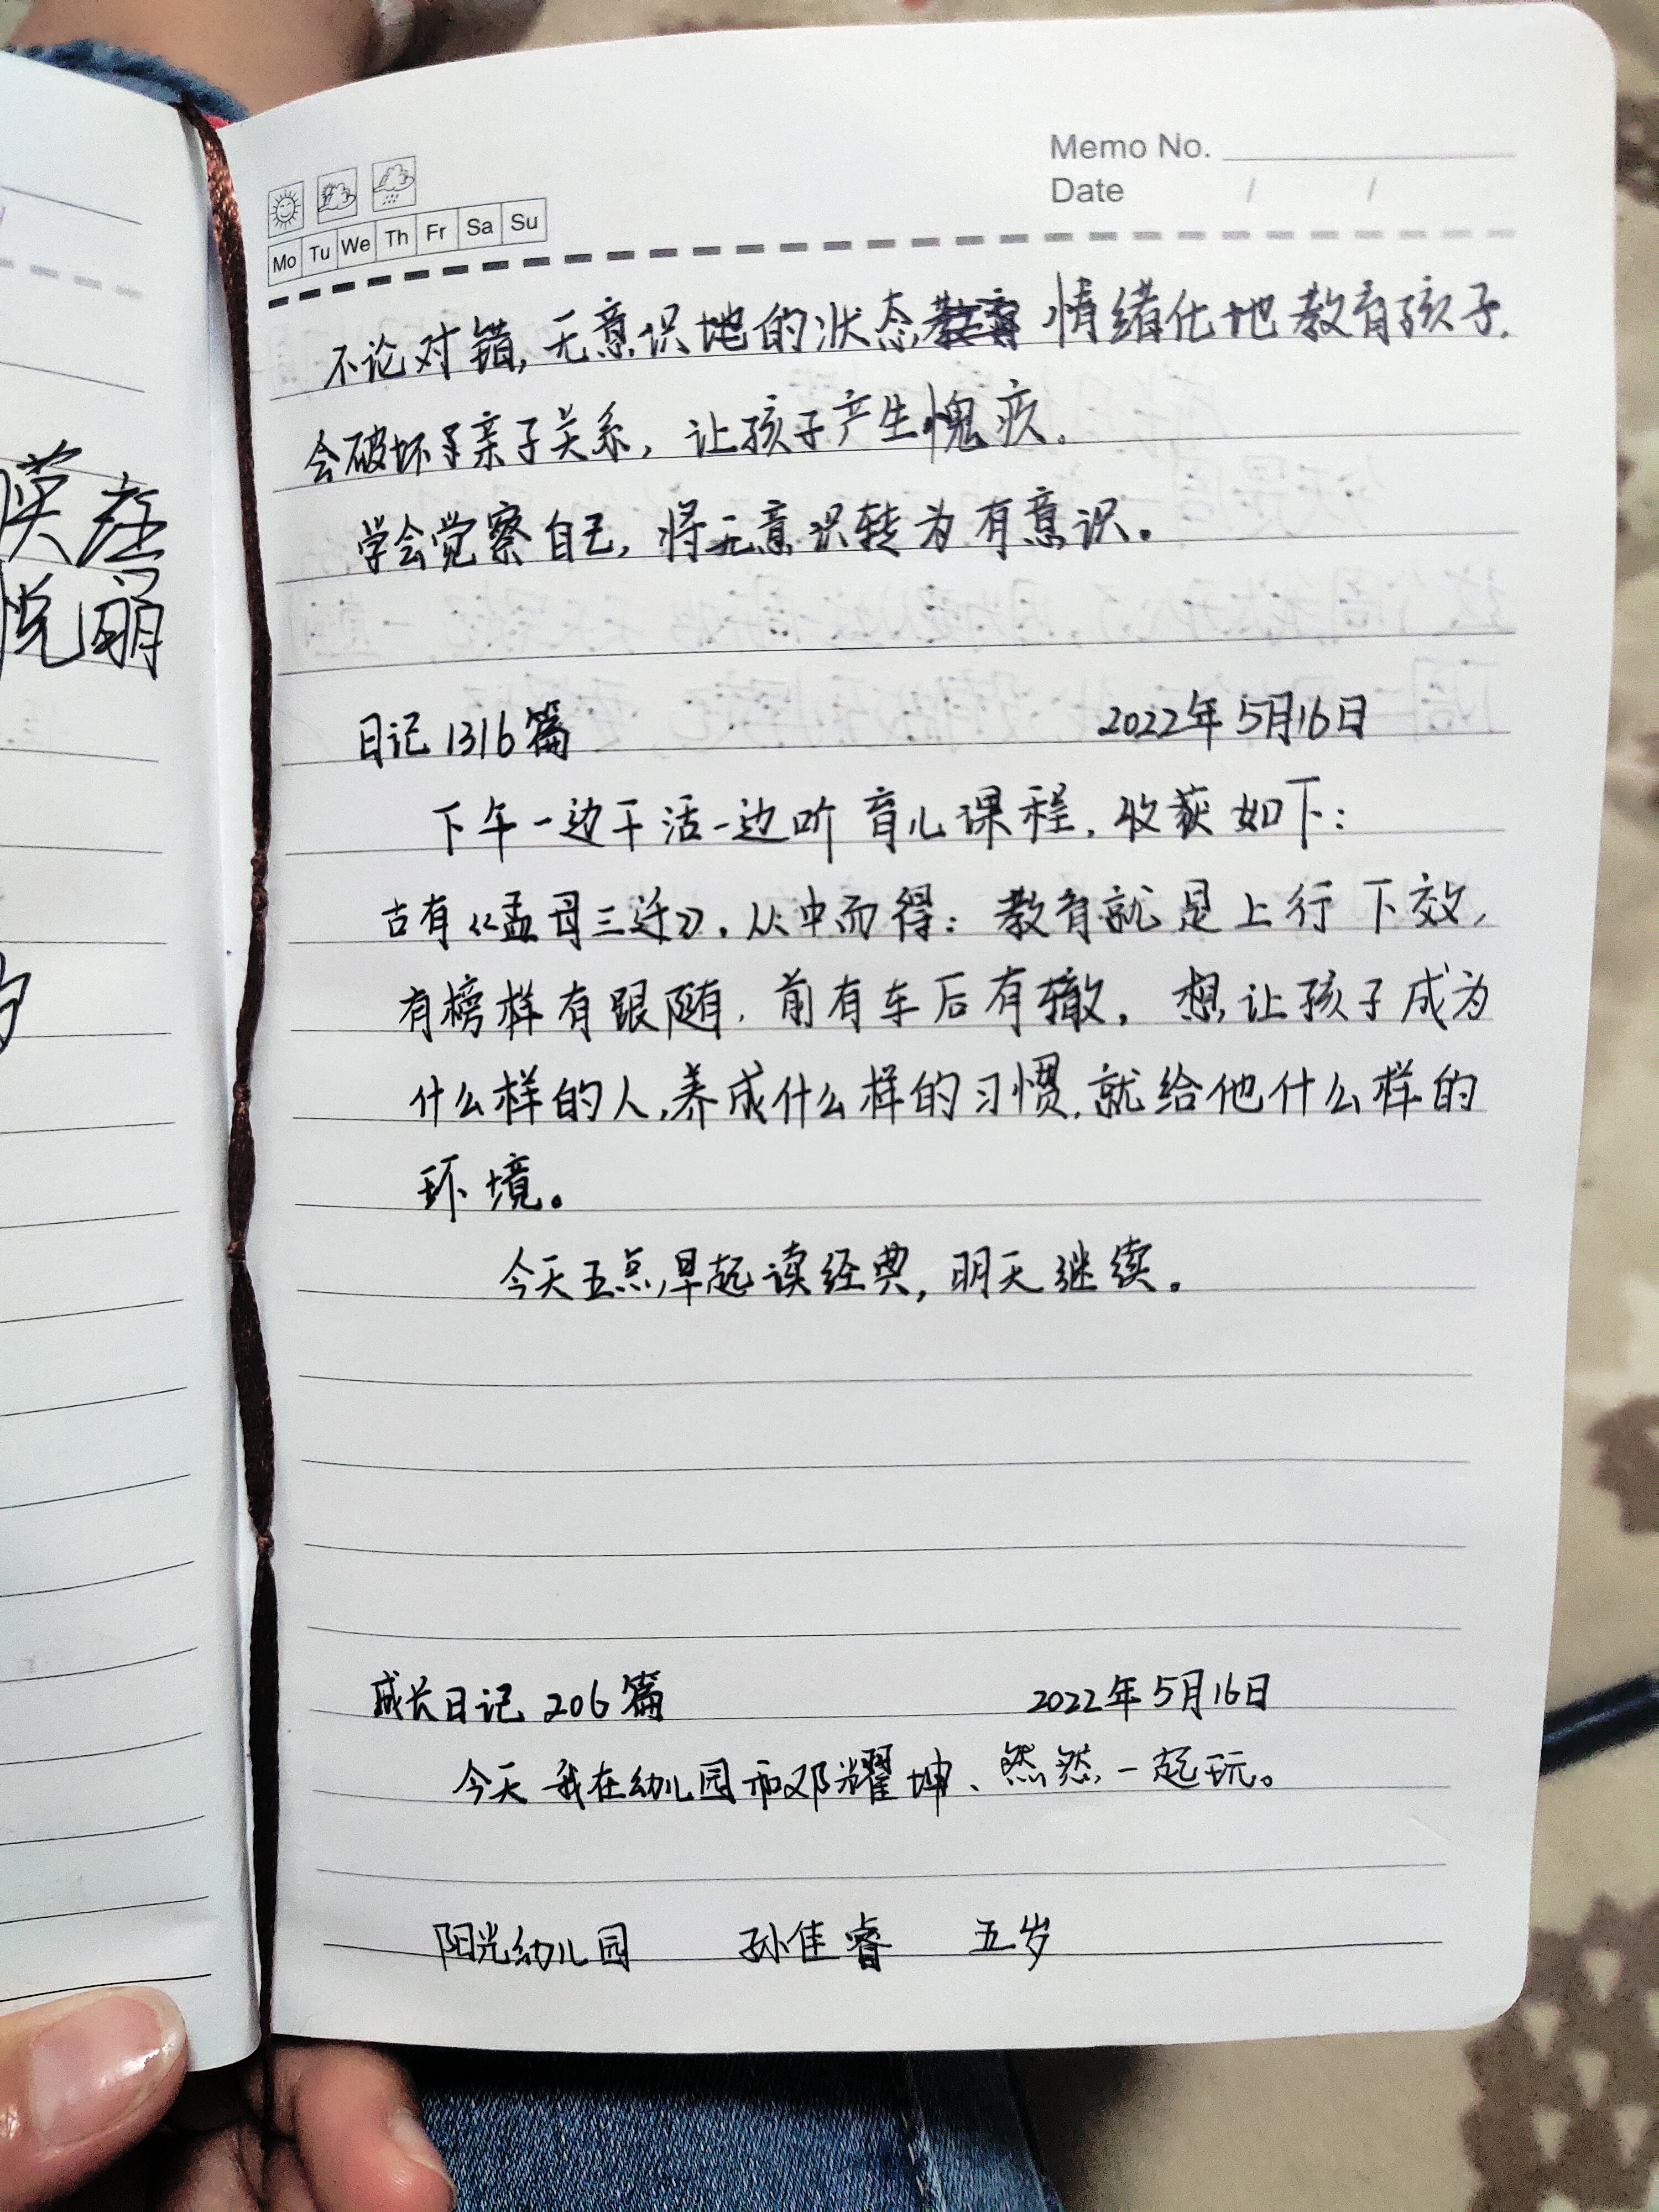 Memo No.
Date / /
Mo Tu We Th Fr Sa Su
不论对错,无意识地的状态 情绪化地教育孩子.
会破坏了亲子关系,让孩子产生愧疚。
学会觉察自己,将无意识转为有意识。
日记1316篇 2022年5月16日
下午一边干活一边听育儿课程.收获如下:
古有《孟母三迁》.从中而得:教育就是上行下效,
有榜样有跟随.前有车后有辙。想让孩子成为
什么样的人,养成什么样的习惯.就给他什么样的
环境。
今天五点早起读经典,明天继续。
成长日记 206篇 2022年5月16日
今天我在幼儿园和邓耀坤、然然一起玩。
阳光幼儿园 孙佳睿 五岁